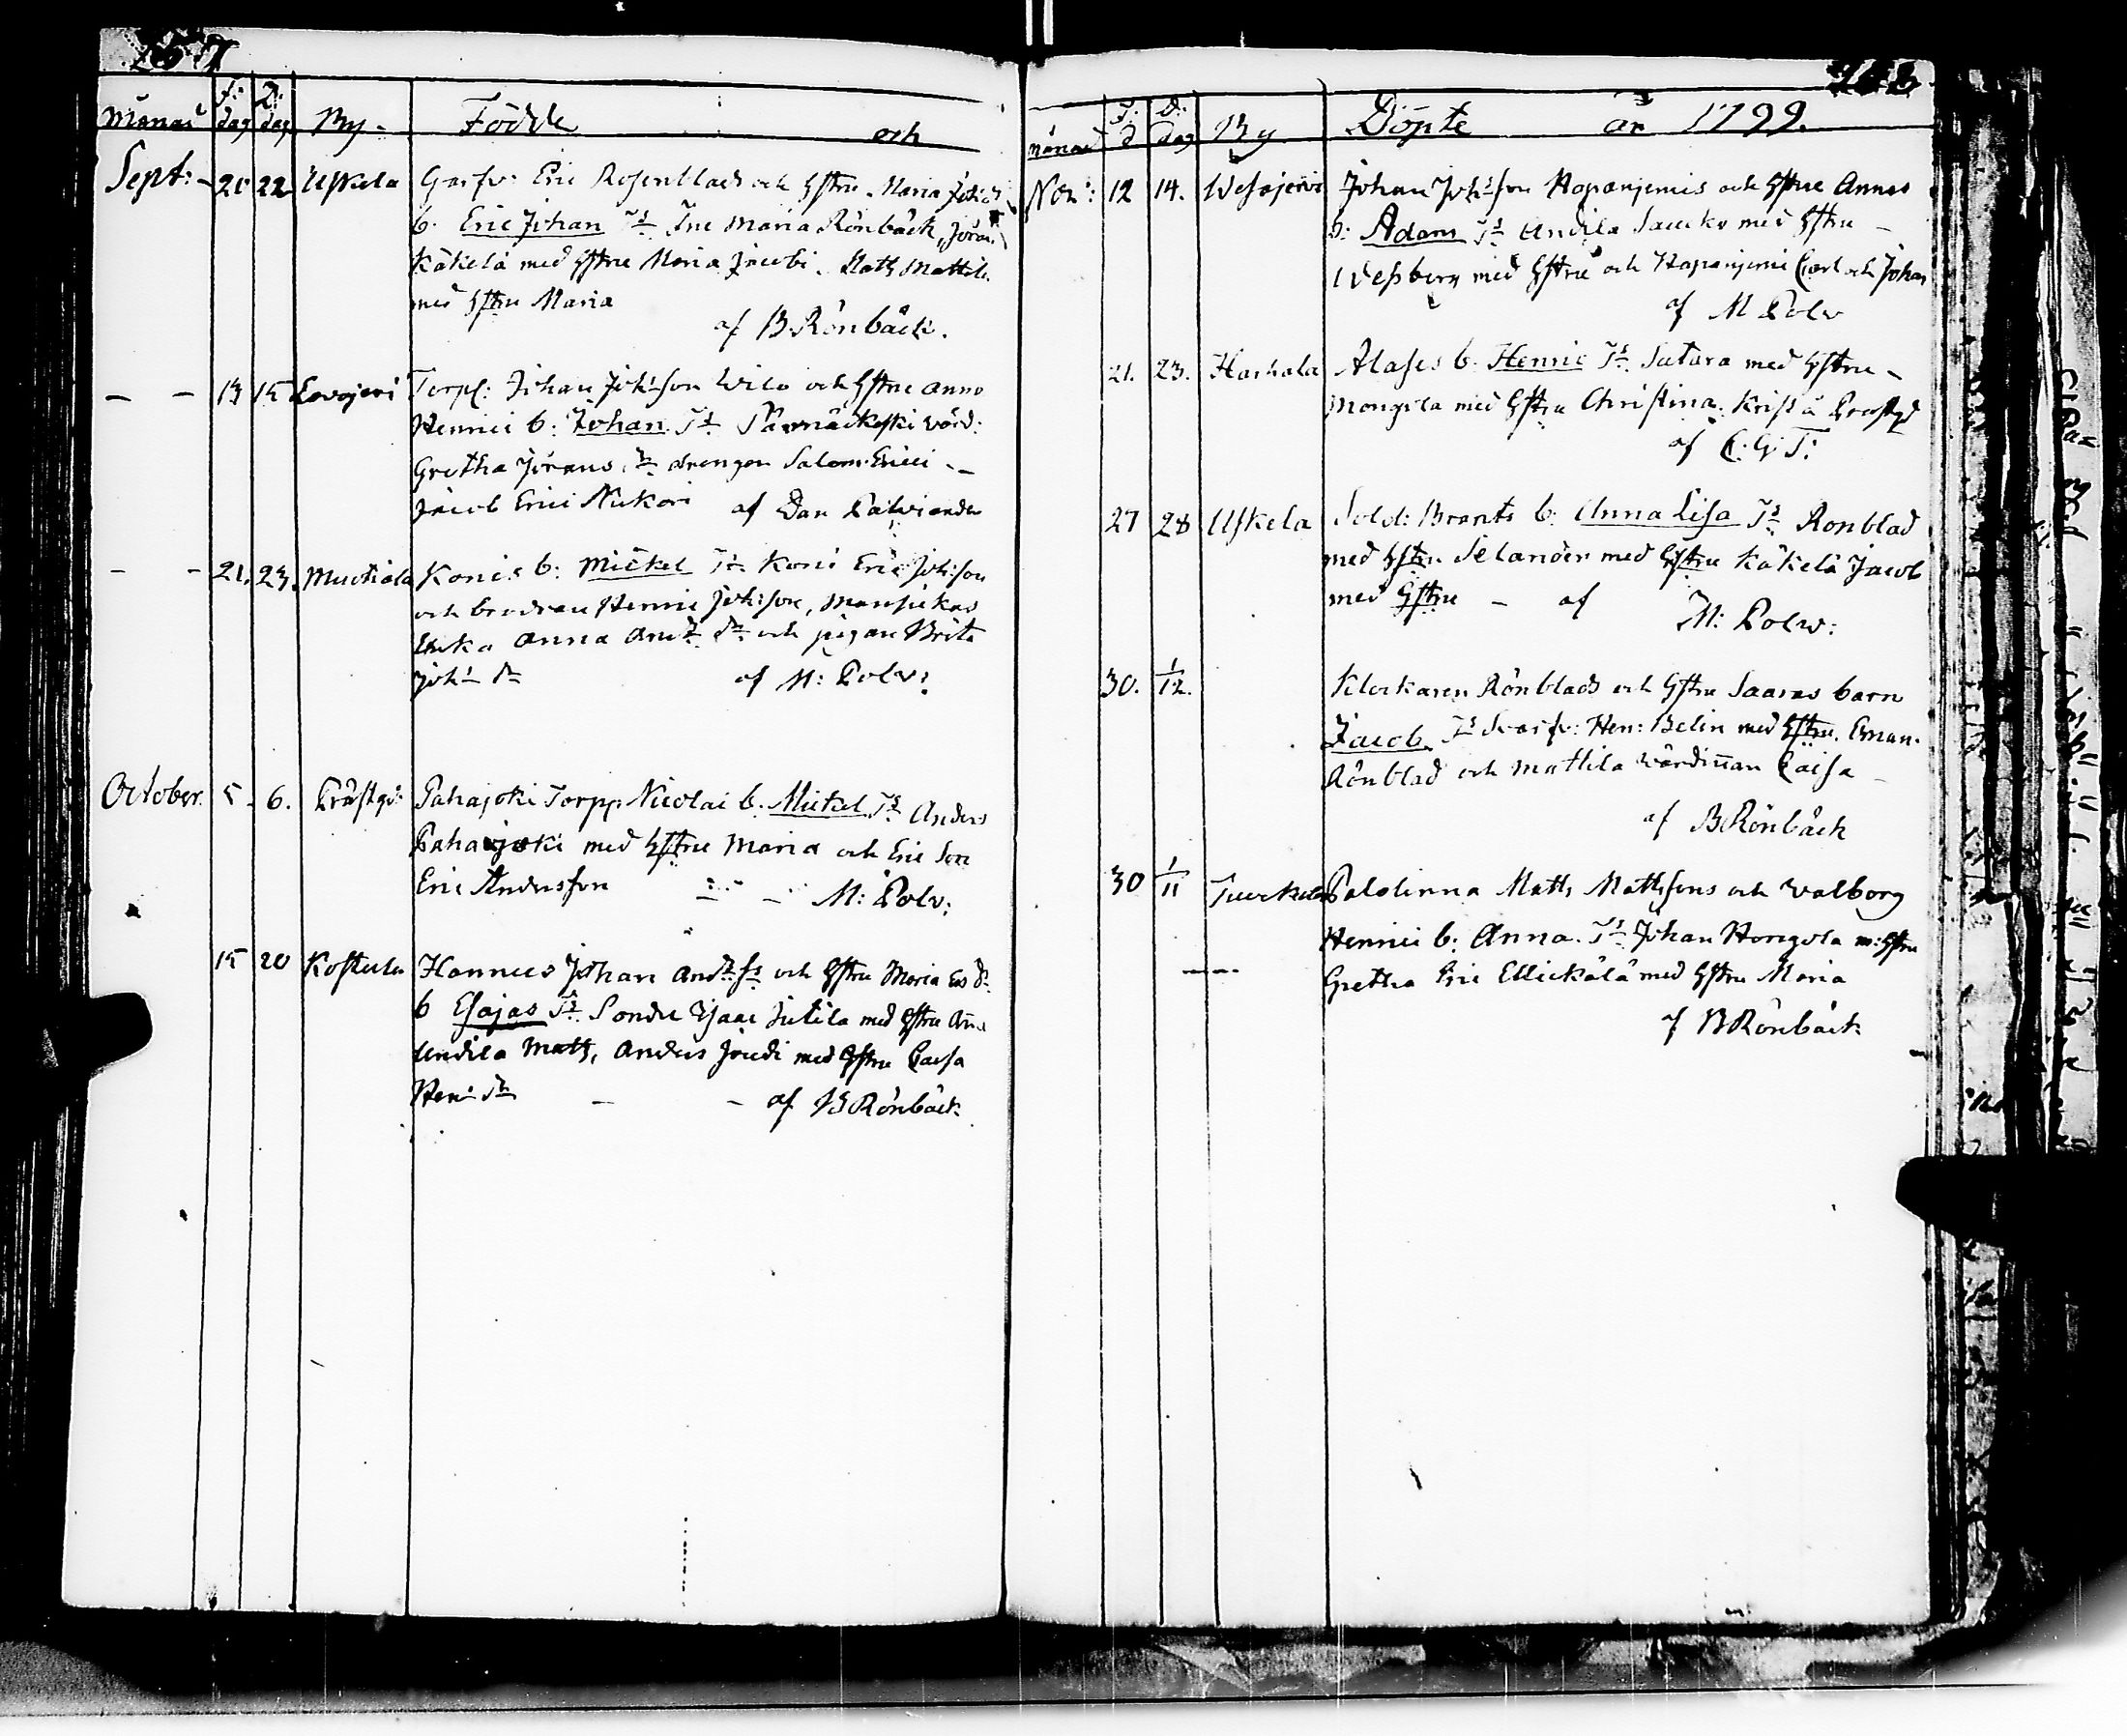 257
Månad f: dag D: dag By. Födde och
Sept: 21 22 Uskela Garfv: Eric Rosenblads och Hstru Maria Joh:
b. Eric Johan Ts Fru Maria Rönbäck, Jöran
Käkelä med Hstru Maria Jacobi. Math Mattil.
med Hstru Maria
af B Rönbäck.
— — 13 15 Lovojervi Torp: Johan Joh:son Wilo och Hstrue Anna
Henrici b: Johan Ts värd:
Gretha Jörans dr drengen Salom: Erici - -
Jacob Erici Niekari af Dan Palviander
- - 21. 23. Mustiala Konis b: Mickel Ts Koni Eric Joh:son
och brodren Henric Joh:son, Mansikas
Enka Anna And:s dr och pigan Brita
Joh: dr af M: Polv:
October. 5. 6. PräSTg: Pahajoki Torpp: Nicolai b. Mickel Ts Anders
Pahajoki med Hstru Maria och Eric Son
Eric Andersson M: Polv:
15 20 Kostula Hannus Johan And:s s: och Hstru Maria Es d:
b Esajas Ts Sondu Isaac Jutila med Hstru Aña
Undila Math, Anders Joudi med Hstru Caisa
Hen: dr - - af B Rönbäck
månad F: d D: dag By Döpte år 1799.
Nov: 12 14. Wesajervi Johan Joh:son Hapaniemis och Hstrue Annas
b: Adam Ts Undila Saucko med Hstru -
Wessberg med Hstru och Hapaniemi Carl och Johan
af M Polv
21. 23. Harhala Alases b. Henric Ts Satara med Hstru -
Mongola med Hstru Christina. Krist å Prostgd
af C: G: T:
27 28 Uskela Sold: Brants b: Anna Lisa Ts Ronblad
med Hstru Selander med Hstru Käkelä Jacob
med Hstru - af M: Polw:
30. 1/12. Klockaren Rönblads och Hstru Saaras barn
Jacob Ts Svarfv: Hen: Belin med Hstru. Eman.
Rönblad och Mattila wärdiñan Caisa -
af B Rönbäck
30 1/11 Tuurkula Palolinna Math Mathsons och Walborg
Henrici b: Anna. Ts Johan Hongola m: Hstru
Gretha Eric Ellickälä med Hstru Maria
af B Rönbäck